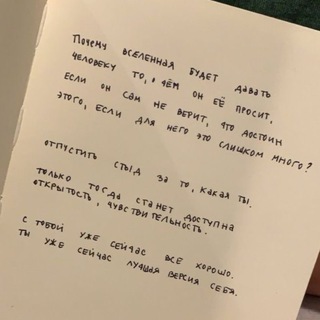 Почему вселенная будет давать
человеку то, о чём он её просит,
если он сам не верит, что достоин
этого, если для него это слишком много?
отпустить стыд за то, какая ты.
только тогда станет доступна
открытость, чувствительность.
с тобой уже сейчас все хорошо.
ты уже сейчас лучшая версия себя.